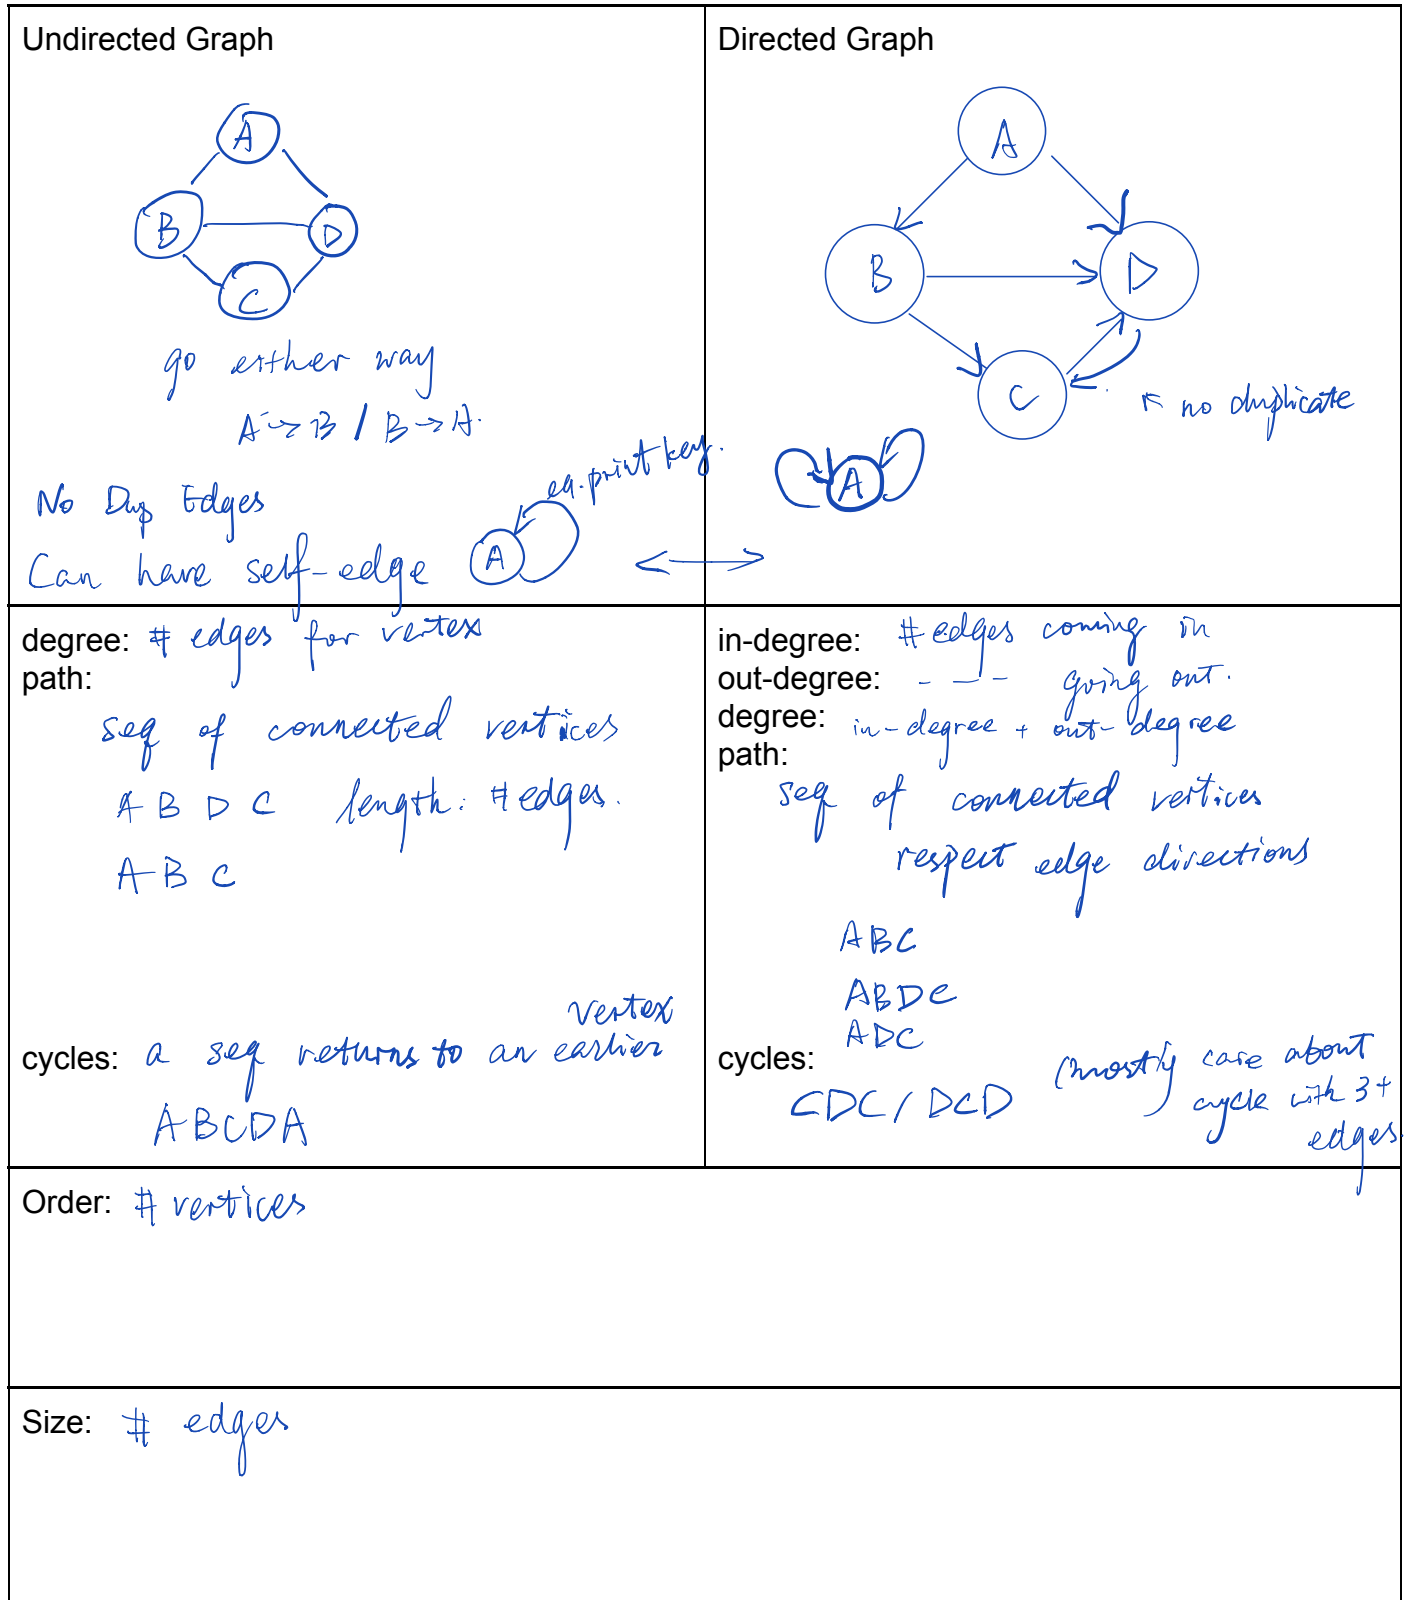 Undirected Graph
A
B
D
C
go either way
A → B / B → A.
No Dup Edges
eg. print key.
Can have self-edge
A
Directed Graph
A
B
D
C
no duplicate
A
degree: # edges for vertex
path:
seq of connected vertices
A B D C length: # edges.
A B C
vertex
cycles: a seq returns to an earlier
ABCDA
in-degree: # edges coming in
out-degree: - - - going out.
degree: in-degree + out-degree
path:
seq of connected vertices
respect edge directions
ABC
ABDC
ADC
cycles:
CDC / DCD
(mostly care about
cycle with 3+
edges
Order: # vertices
Size: # edges